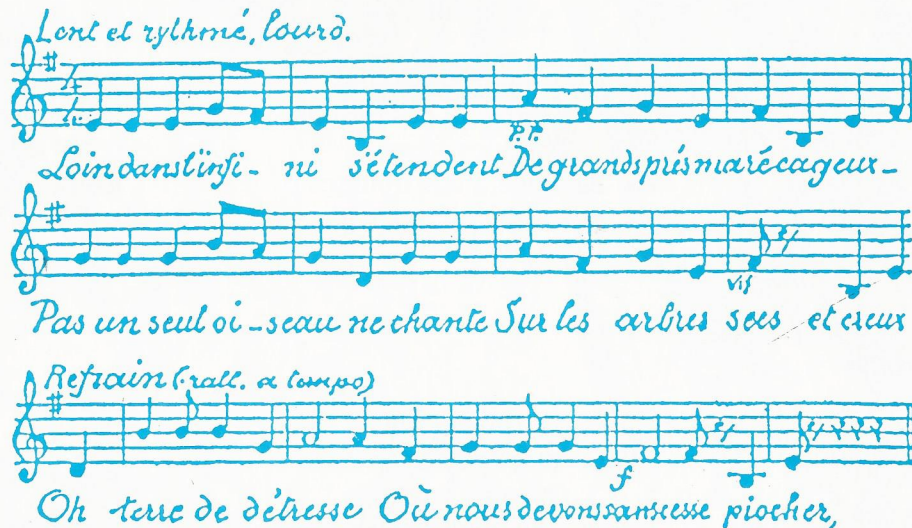 Lent et rythmé, lourd.
p.p.
Loin dans l'infi- ni s'étendent De grands prés marécageux-
vif
Pas un seul oi-seau ne chante Sur les arbres secs et creux
Refrain (rall. a tempo)
f
Oh terre de détresse Où nous devons sans cesse piocher,